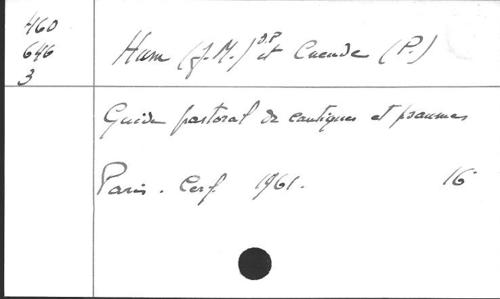 460
646
3
Hum (J.M.) O.P et Cneude (P.)
Guide pastoral de cantiques et psaumes
Paris. Cerf 1961. 16°